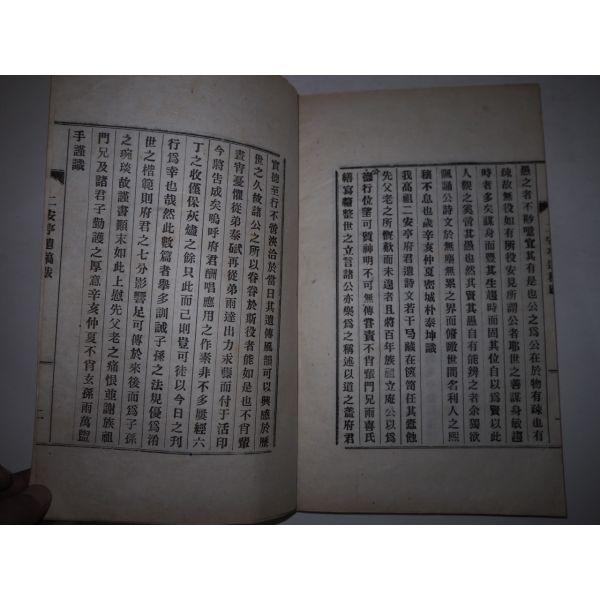 愚之者不尠噫宜其有是也公之爲公在於物有疎也有
疎故無役如有所役安見所謂公者耶世之善謀身敏趨
時者多矣謀身而豐其生趨時而固其位自以爲賢以此
人觀之奚啻其愚也然其賢其愚自有能辨之者余獨欲
諷誦公詩文於無塵無累之界而俯瞰世間名利人之熙
穰不息也歲辛亥仲夏密城朴泰坤識
我高祖二安亭府君遺詩文若干号藏在篋笥任其蠹蝕
先父老之所慨歎而未遑者且將百年族祖立庵公以爲
德行位望可質神明不可無傳嘗責不肖輩門兄雨喜氏
繕寫釐整世之立言諸公亦樂爲之稱述以道之蓋府君
實德至行不啻浹洽於當日其遺傳風韻可以興感於歷
世之久故諸公之所以眷眷於斯役者能如是也不肖輩
晝宵憂懼從弟泰斌再從弟雨達出力求釀而付于活印
今將告成矣嗚呼府君酬唱應用之作素非不多屢經六
丁之收僅保灰燼之餘只此而已則豈可徒以今日之刊
行爲幸也哉然此數篇者擧多訓誡子孫之法規優爲治
世之楷範則府君之七分影響足可傳於來後而爲子孫
之琬琰故謹書顚末如此上慰先父老之痛恨並謝族祖
門兄及諸君子勤護之厚意辛亥仲夏不肖玄孫雨萬盥
手謹識
二安亭遺稿跋
二